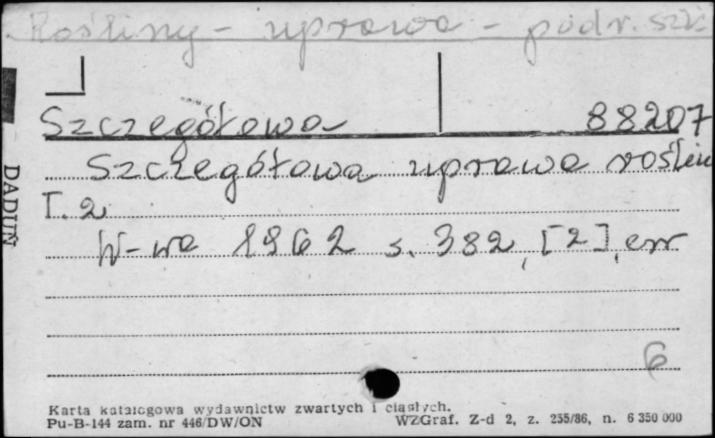 Rośliny - uprawa - podr. szk.
Szczegółowa 88207
Szczegółowa uprawa roślin
T. 2
W-wa 1962 s. 382, [2], err
6
DADUŃ
Karta katalogowa wydawnictw zwartych i ciągłych.
Pu-B-144 zam. nr 446/DW/ON WZGraf. Z-d 2, z. 255/86, n. 6 350 000